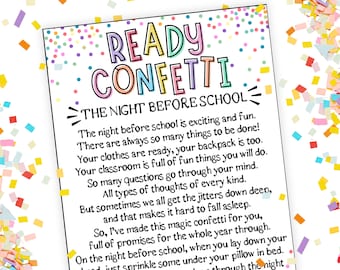 READY
CONFETTI
THE NIGHT BEFORE SCHOOL
The night before school is exciting and fun.
There are always so many things to be done!
Your clothes are ready, your backpack is too.
Your classroom is full of fun things you will do.
So many questions go through your mind.
All types of thoughts of every kind.
But sometimes we all get the jitters down deep,
and that makes it hard to fall asleep.
So, I've made this magic confetti for you,
full of promises for the whole year through.
On the night before school, when you lay down your
head, just sprinkle some under your pillow in bed.